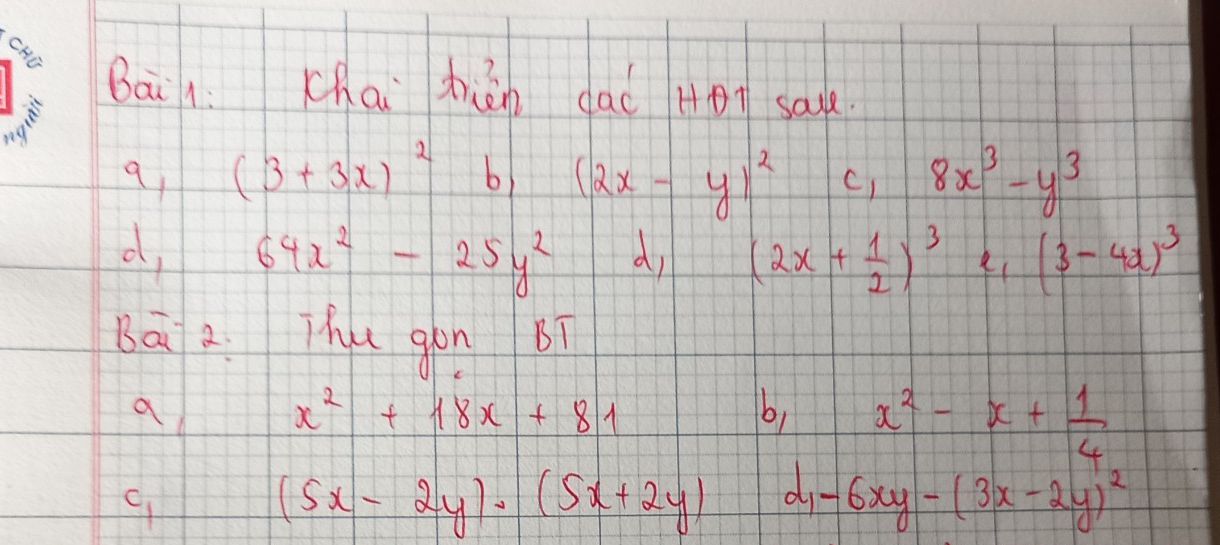 CHỮ
người
Bài 1: Khai triển các HĐT sau.
a, (3 + 3x)² b, (2x - y)² c, 8x³ - y³
d, 64x² - 25y² d, (2x + 1/2)³ e, (3 - 4x)³
Bài 2: Thu gọn BT
a, x² + 18x + 81 b, x² - x + 1/4
c, (5x - 2y) . (5x + 2y) d, -6xy - (3x - 2y)²